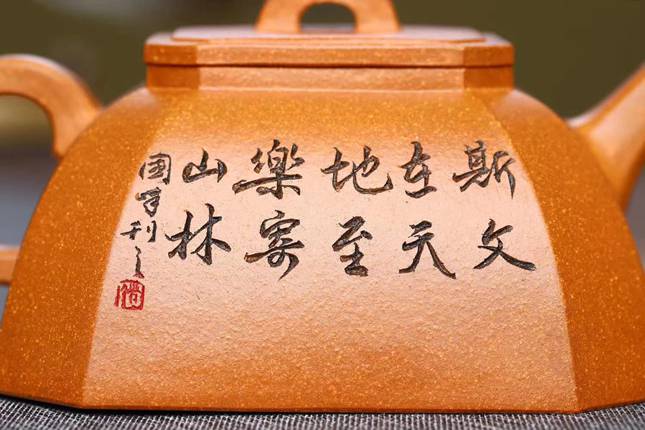 斯文
在天
地至
樂寄
山林
国刊之